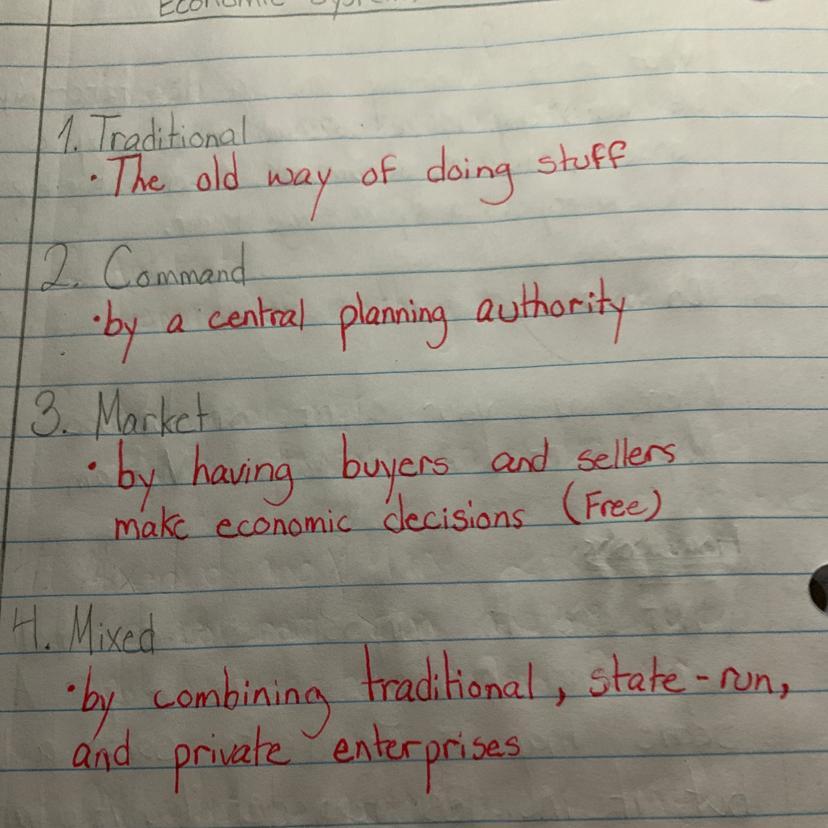 Economic Systems
1. Traditional
• The old way of doing stuff
2. Command
• by a central planning authority
3. Market
• by having buyers and sellers
make economic decisions (Free)
4. Mixed
• by combining traditional, state-run,
and private enterprises